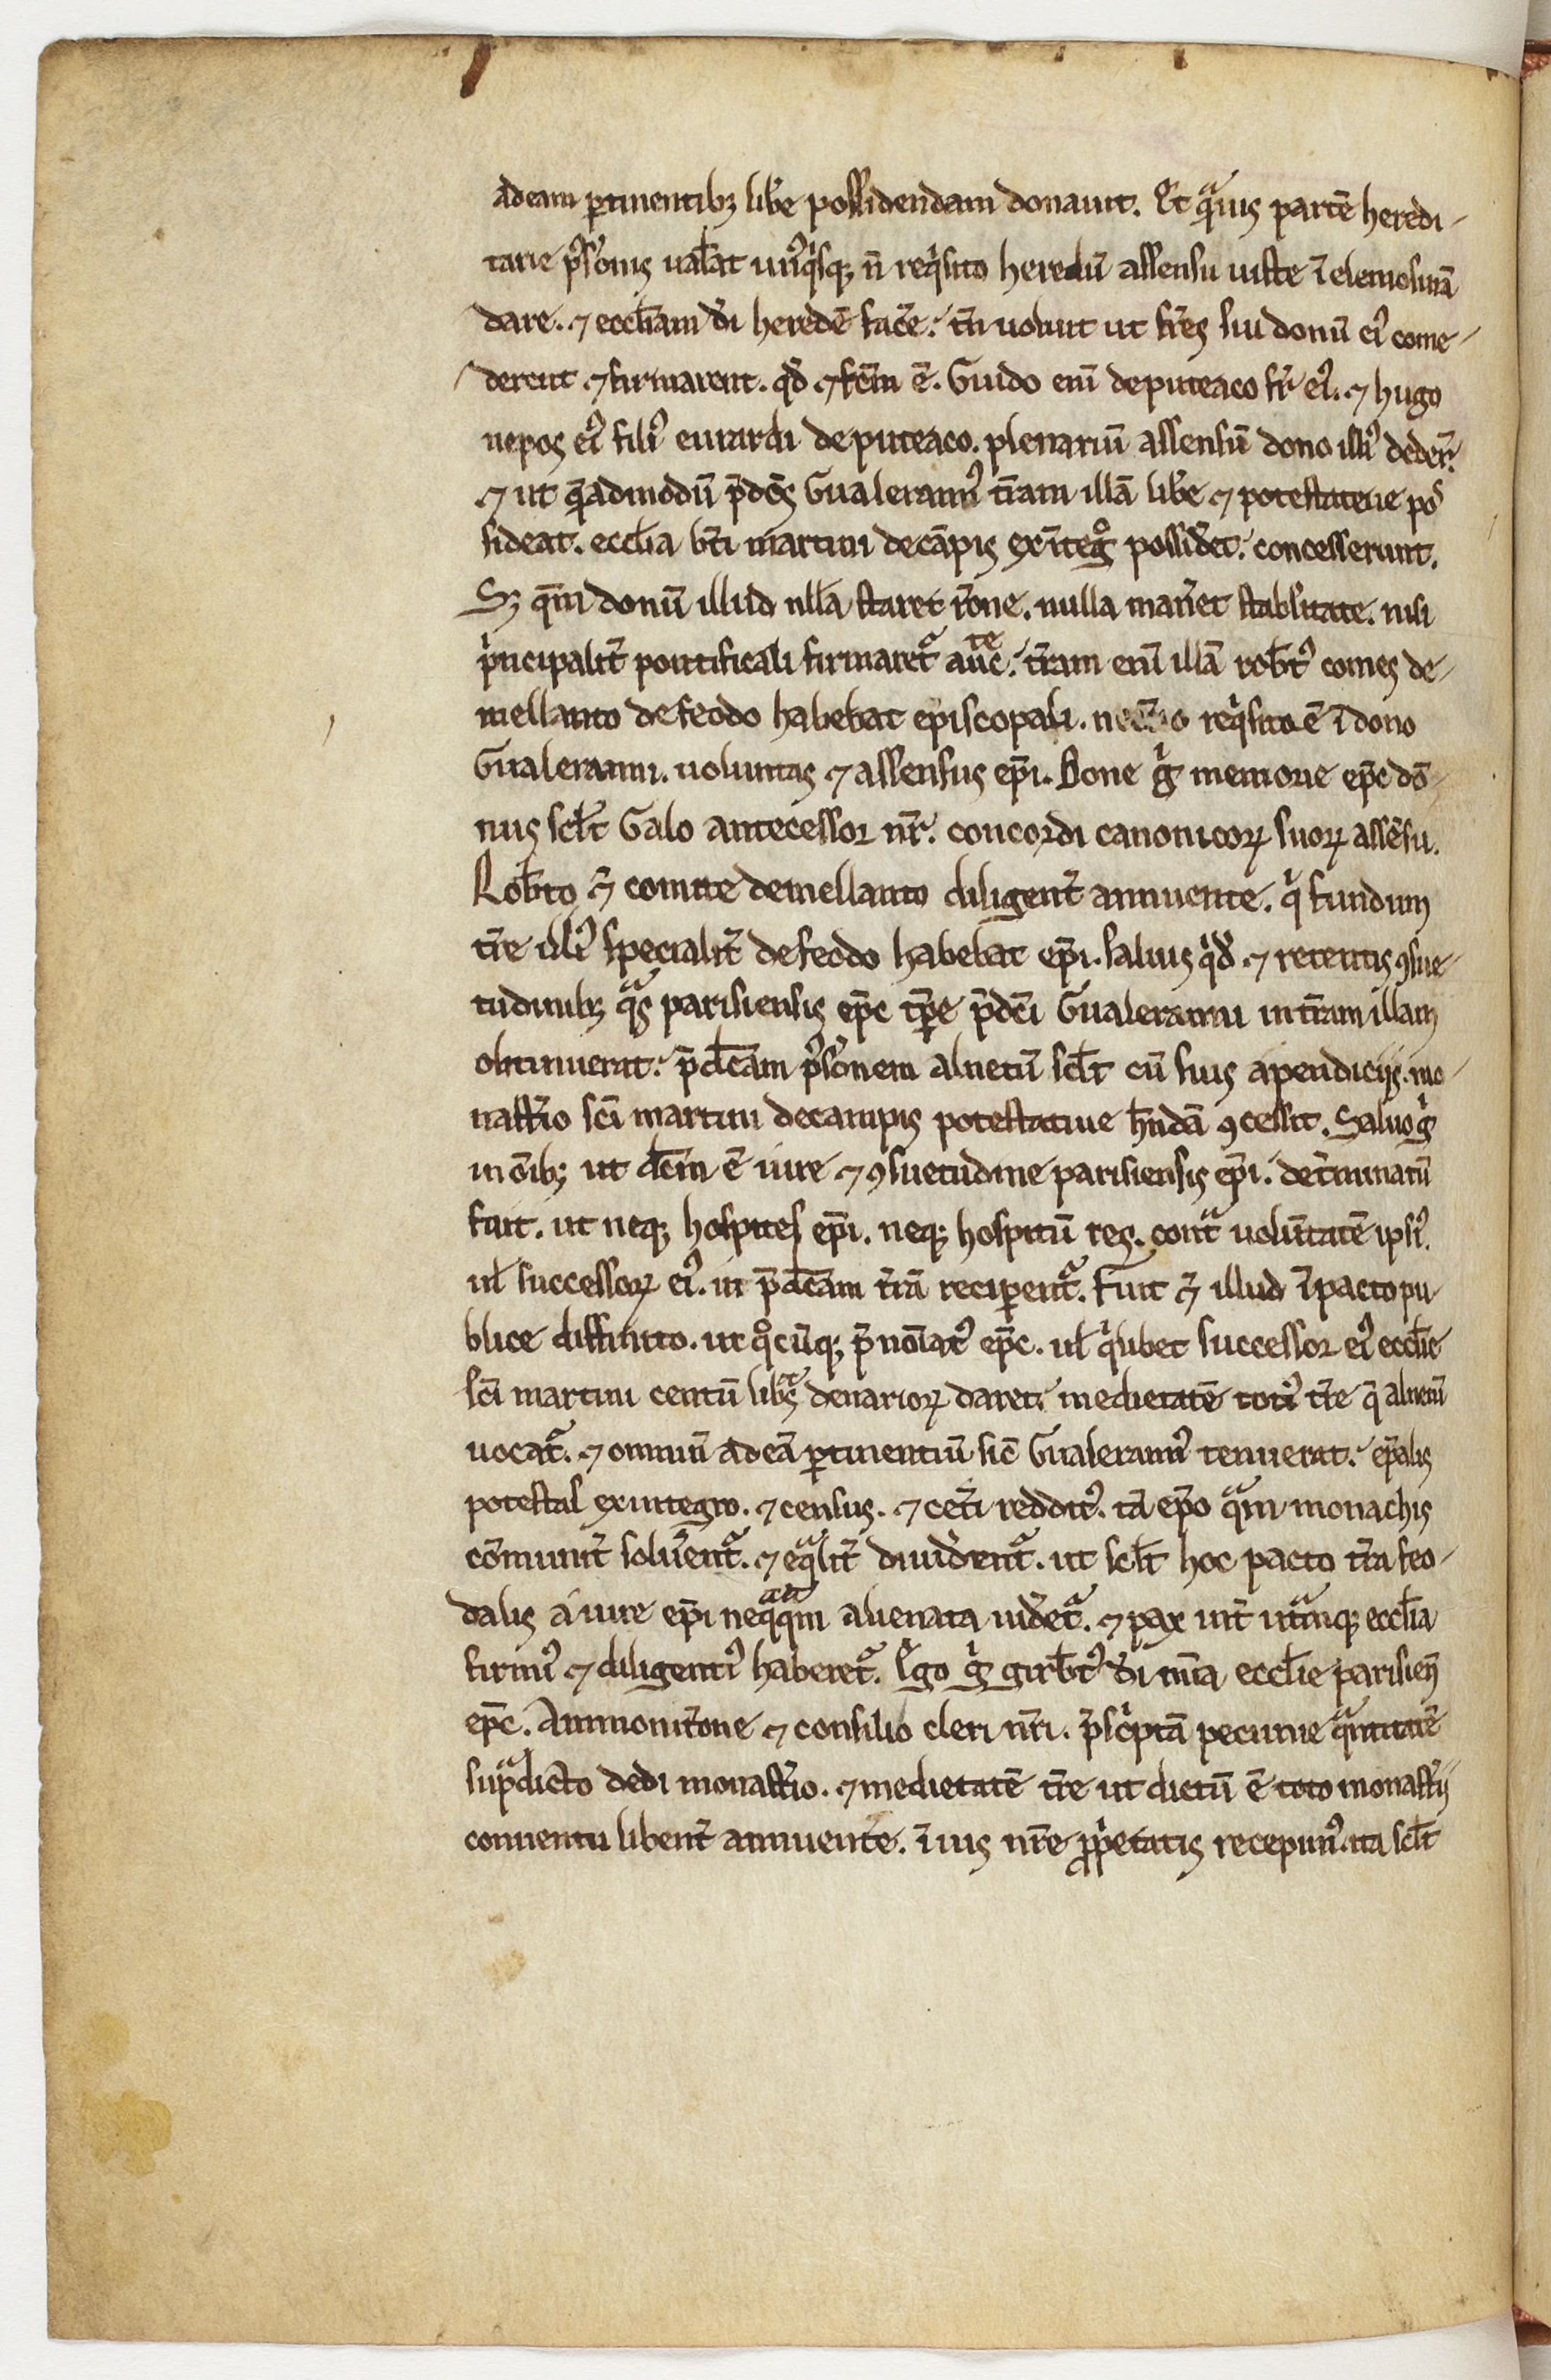 adeam ꝑtinentibꝫ liƀe possidendam donauit. Et qͣmuis partē heredi-
tarie p̾sionis ualeat unꝰqͥsqꝫ n̄ reqͥsito heredū assensu iuste ī elemosinā
dare. ⁊ eccl̄iam dī heredē fac̾e. tn̄ uoluit ut fr̄es sui donū eiꝰ come-
derent ⁊ firmarent. qđ ⁊ fc̄m ē. Guido eni̅ de puteaco fr̄ eiꝰ. ⁊ hugo
nepos eiꝰ filiꝰ eurardi de puteaco. plenariū assensū dono illiꝰ deder̄.
⁊ ut quēadmodū p̄dc̄s Gualerannꝰ tr̄am illā liƀe ⁊ potestatiue pos
sideat. eccl̄ia bt̄i martini decāpis exītegͦ possid̾et. concesserunt.
Sꝫ qm̄ donū illud nll̄a staret rōne. nulla man̾et stabilitate. nisi
pͥncipalit̾ pontificali firmaretᷣ aucte. tr̄am eni̅ illā roƀtꝰ comes de-
mellanto defeodo habebat episcopali. reqͥsito ē ī dono
Gualeranni. uoluntas ⁊ assensus ep̄i. Bone gͥ memorie ep̄c dō-
nus scil̄t Galo antecessor nr̄. concordi canonicoꝝ suoꝝ assēsu.
Roƀto ⁊̄ comite demellanto diligent̾ annuente. qͥ fundum
tr̄e illiꝰ specialit̾ defeodo habebat ep̄i. saluis qͥđ ⁊ retentis ꝯsue-
tudinibꝫ qͣs parisiensis ep̄c tp̄re p̄dc̄i Gualeranni intr̄am illam
obtinuerit. p̄dc̄am p̾sionem alnetū scil̄t cū suis apendiciis. mo-
nast̾io sc̄i martini decampis potestatiue hn̄dā ꝯcessit. Saluo gͥ
in oīibꝫ ut dc̄m ē iure ⁊ ꝯsuetudine parisiensis ep̄i. det̾minatū
fuit. ut neqꝫ hospites ep̄i. neqꝫ hospitū reg. contᷓ uolūtatē ipsiꝰ.
ul̄ successoꝝ eiꝰ. in p̄dc̄am tr̄ā reciperentᷣ. Fuit ⁊̄ illud ī pacto pu-
blice diffinito. ut qͦcūqꝫ p̄noīatꝰ ep̄c. ul̄ qͥlibet successor eiꝰ eccl̄ie
sc̄i martini centū libͣs denarioꝝ daret. medietatē totiꝰ tr̄e q̄ alnetū
uocatᷣ. ⁊ omniū adeā ꝑtinentiū sic̄ Gualerannꝰ tenuerat. ep̄alis
potestas exintegro. ⁊ census. ⁊ cet̾i redditꝰ. tā ep̄o qͣm monachis
cōmunit̾ solu̾entᷣ. ⁊ eqͣlit̾ diuid̾entᷣ. ut scil̄t hoc pacto tr̄a feo-
dalis a iure ep̄i neqͣqͣm alienata uid̾etᷣ. ⁊ pax int̾ utͣmqꝫ eccl̄ia
firmiꝰ ⁊ diligentiꝰ haberetᷣ. Ego gͥ girƀtꝰ dī mīa eccl̄ie parisien̄
ep̄c. Ammonitione ⁊ consilio cleri nr̄i. p̄scͥptā pecunie qͣntitatē
supͣdicto dedi monast̾io. ⁊ medietatē tr̄e ut dictū ē toto monast̾ii
conuentu libent̾ annuente. ī ius nr̄e ꝓpͥetatis recepimꝰ. ita scil̄t